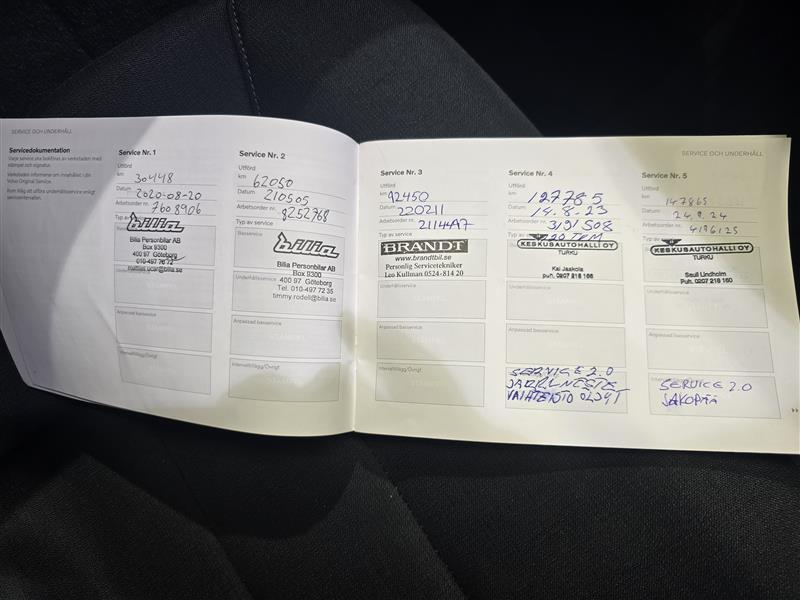 SERVICE OCH UNDERHÅLL
Servicedokumentation
Varje service ska bokföras av verkstaden med
stämpel och signatur.
Verkstaden informerar om innehållet i din
Volvo Original Service.
Service Nr. 1
Utförd
km 30448
Datum 2020-08-20
Arbetsorder nr. 7608906
Typ av service
bilia
Bilia Personbilar AB
Box 9300
400 97 Göteborg
010-497 76 72
Anpassad basservice
Intervalltillägg/Övrigt
Service Nr. 2
Utförd
km 62050
Datum 210505
Arbetsorder nr. 8252768
Typ av service
Basservice
bilia
Bilia Personbilar AB
Box 9300
400 97 Göteborg
Tel. 010-497 72 35
timmy.rodell@bilia.se
Anpassad basservice
Intervalltillägg/Övrigt
SERVICE OCH UNDERHÅLL
Service Nr. 3
Utförd
km 92450
Datum 220211
Arbetsorder nr. 2114A7
Typ av service
BRANDT
www.brandtbil.se
Personlig Servicetekniker
Leo Kullman 0524-814 20
Underhållsservice
Anpassad basservice
Intervalltillägg/Övrigt
Service Nr. 4
Utförd
km 127785
Datum 14.8.23
Arbetsorder nr. 3191508
Typ av
KESKUSAUTOHALLI OY
TURKU
Kai Jaakola
puh. 0207 218 166
Underhållsservice
Anpassad basservice
SERVICE 2.0
JARRUNESTE
VAIHTEISTO ÖLJYT
Service Nr. 5
Utförd
km 147865
Datum 24.9.24
Arbetsorder nr. 4196125
Typ av service
KESKUSAUTOHALLI OY
TURKU
Sauli Lindholm
Puh. 0207 218 160
Underhållsservice
Anpassad basservice
Intervalltillägg/Övrigt
SERVICE 2.0